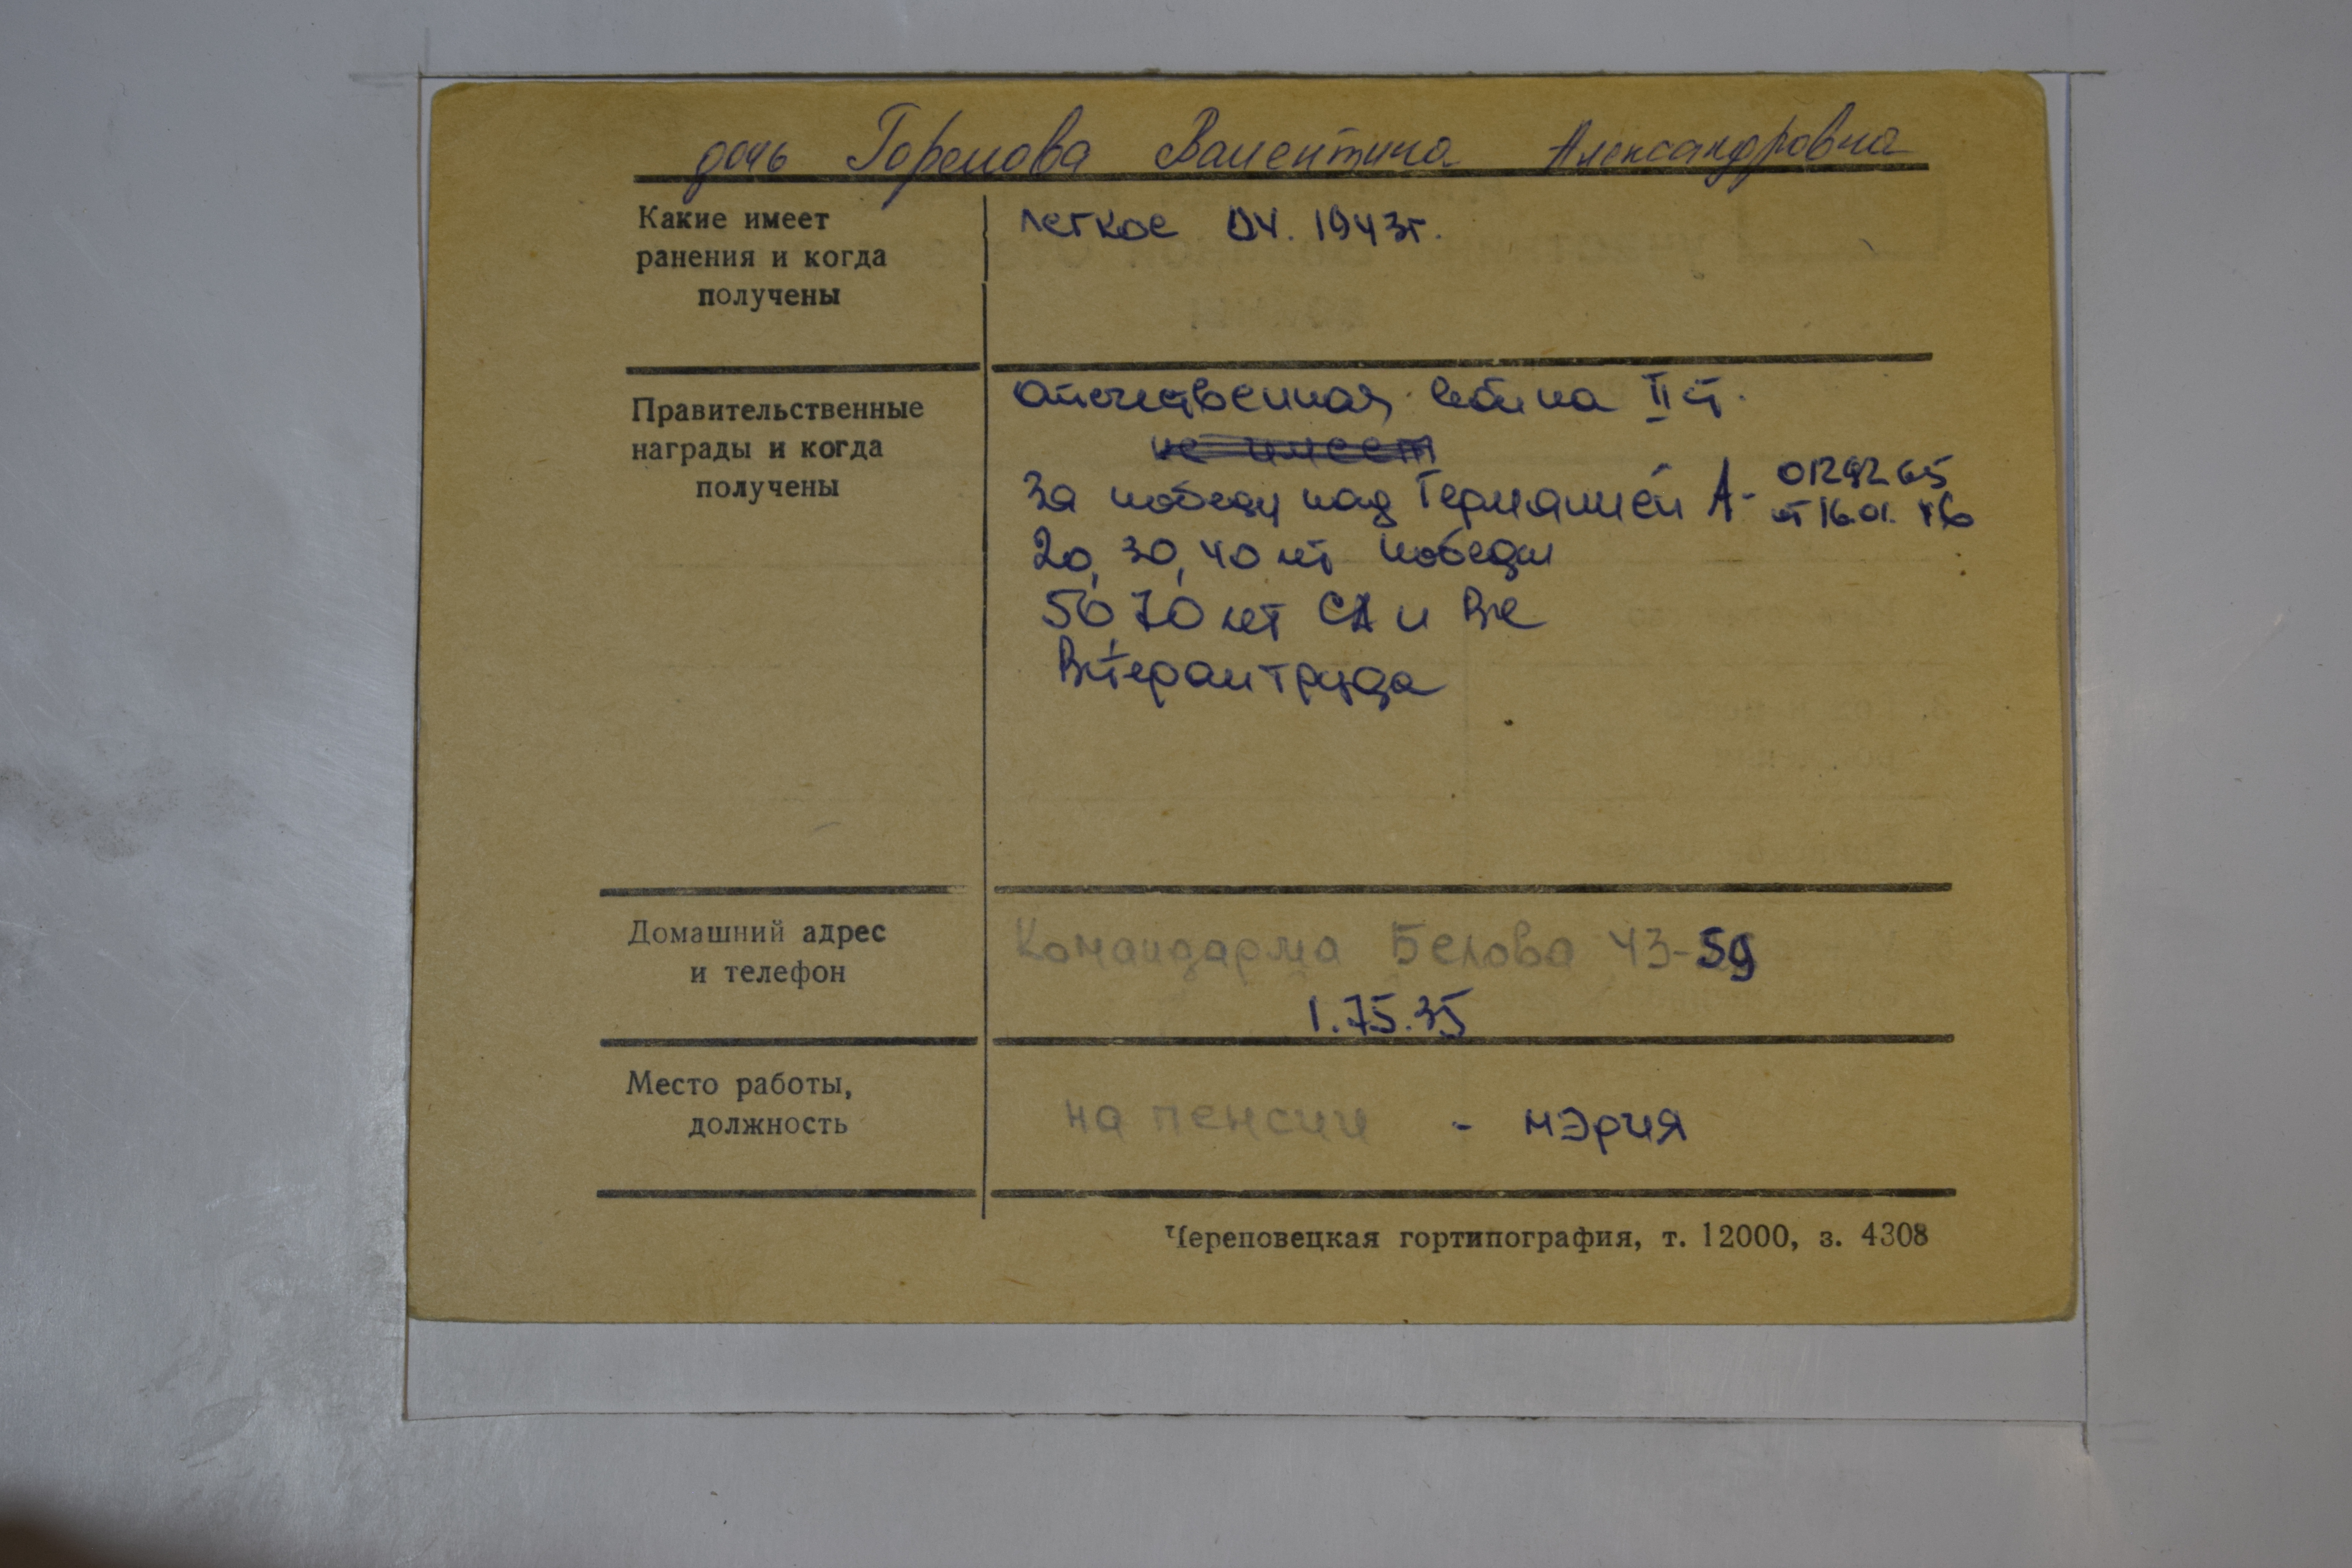 дочь Горелова Валентина Александровна
Какие имеет
ранения и когда
получены
легкое 04. 1943г.
Правительственные
награды и когда
получены
Отечественная война II ст.
не имеет
За победу над Германией А- 0129265
от 16.01. 46
20, 30, 40 лет победы
50, 70 лет СА и ВС
Ветеран труда
Домашний адрес
и телефон
Командарма Белова 43-59
1.75.35
Место работы,
должность
на пенсии - мэрия
Череповецкая гортипография, т. 12000, з. 4308